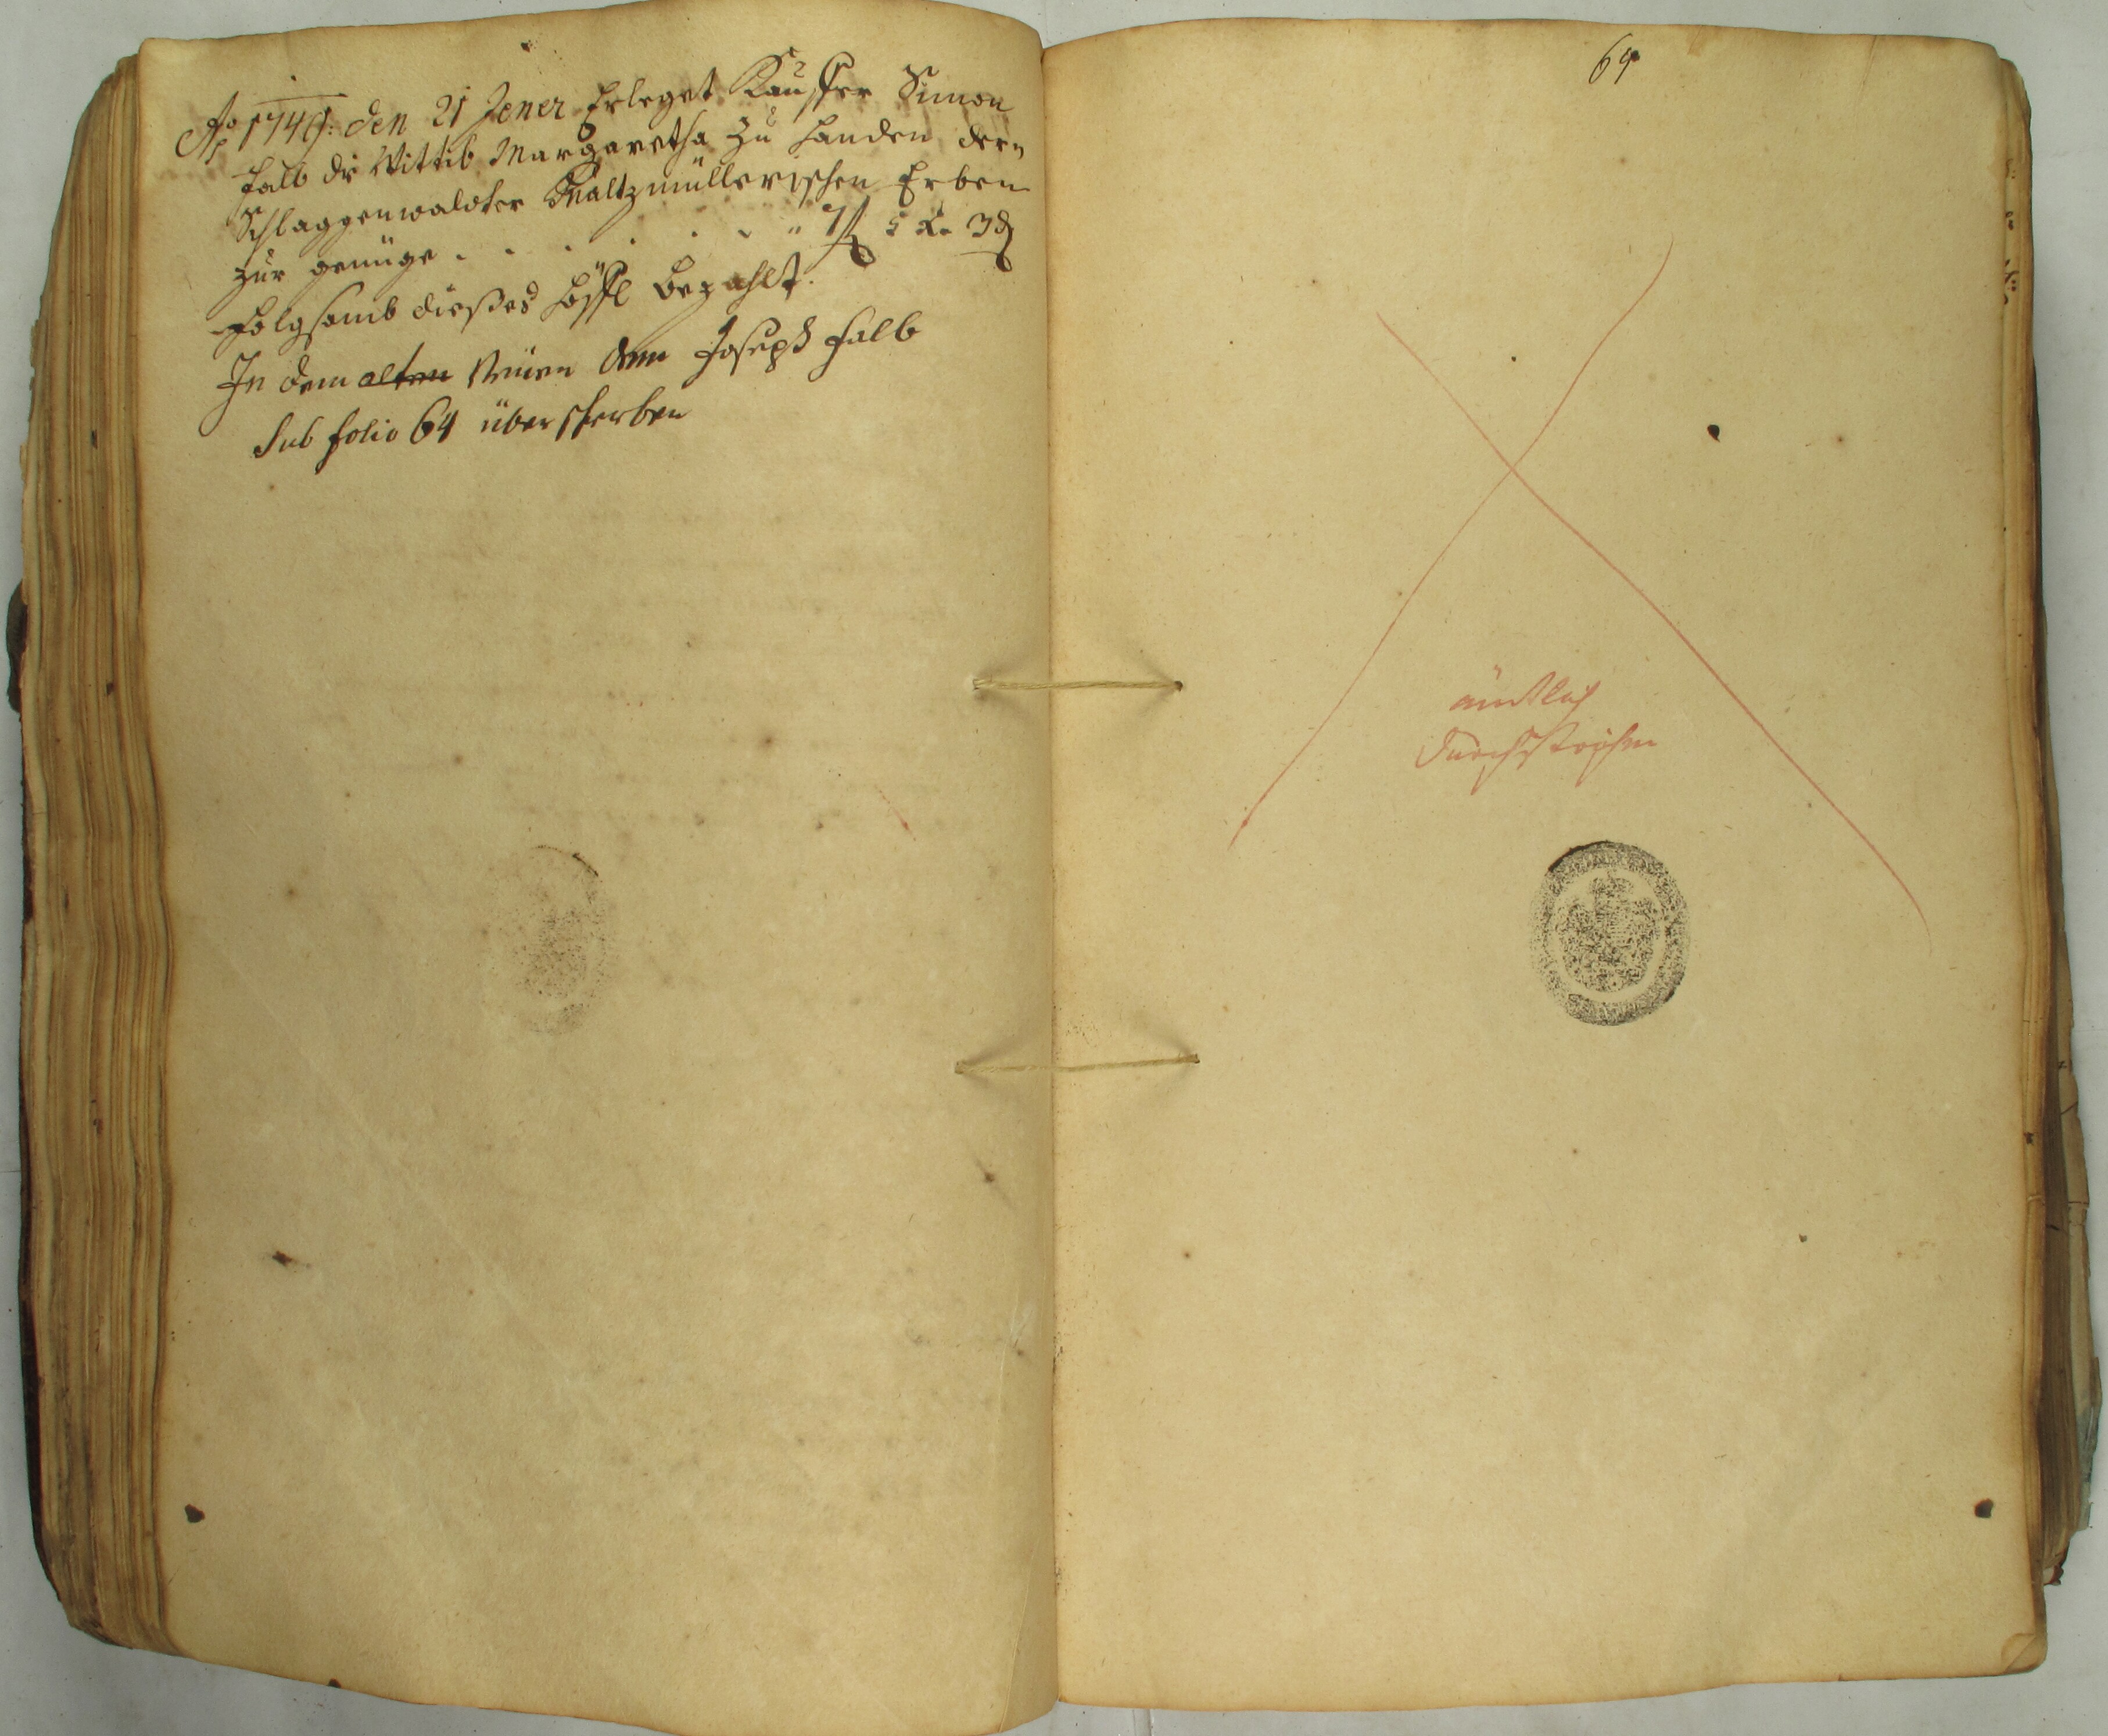 Ao 1749: den 21 Jener Erleget Kauffer Simon
Falb der Wittib Margaretha zu Handen dern
Schlaggenwaldter Maltzmüllerischen Erben
zur genüge . . . . . . " 7 ß 5 Kr 3 d
Folgsamb dießes Höffl bezahlt.
In dem alten Neüen dem Joseph Falb
Sub folio 64 überschrieben
69
ämtlich
durchstrichen